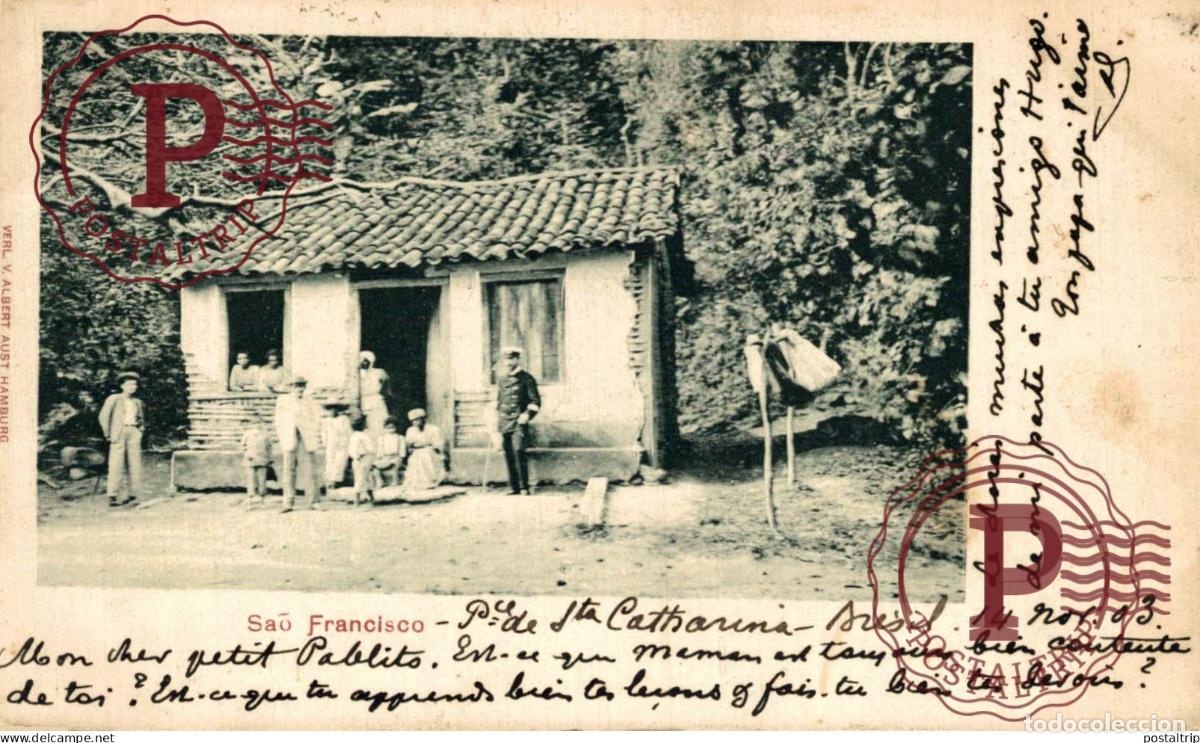 VERL. V. ALBERT AUST HAMBURG
P
POSTALTRIP
Saõ Francisco - Pce de Sta Catharina - Brésil. 14 Nov. 03.
Mon cher petit Pablito. Est-ce que Maman est toujours bien contente
de toi? Est-ce que tu apprends bien tes leçons & fais-tu bien tes devoirs?
muchas
de mi parte á tu amigo Hugo
Gonzaga qui t'aime
P
POSTALTRIP
todocoleccion
postaltrip